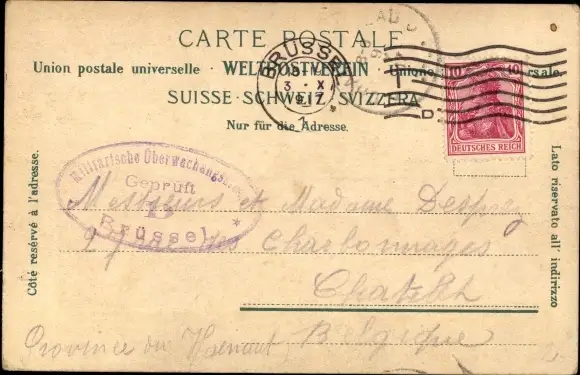 CARTE POSTALE
Union postale universelle · WELTPOSTVEREIN · Unione
rsale
SUISSE · SCHWEIZ · SVIZZERA
Nur für die Adresse.
BRÜSSEL
3 · X
1
10 10
DEUTSCHES REICH
Militärische Überwachungs
Geprüft
Brüssel *
Côté resérvé à l'adresse.
Lato riservato all' indirizzo
Messieurs et Madame
des Charbonnages
Belgique
Province du Hainaut